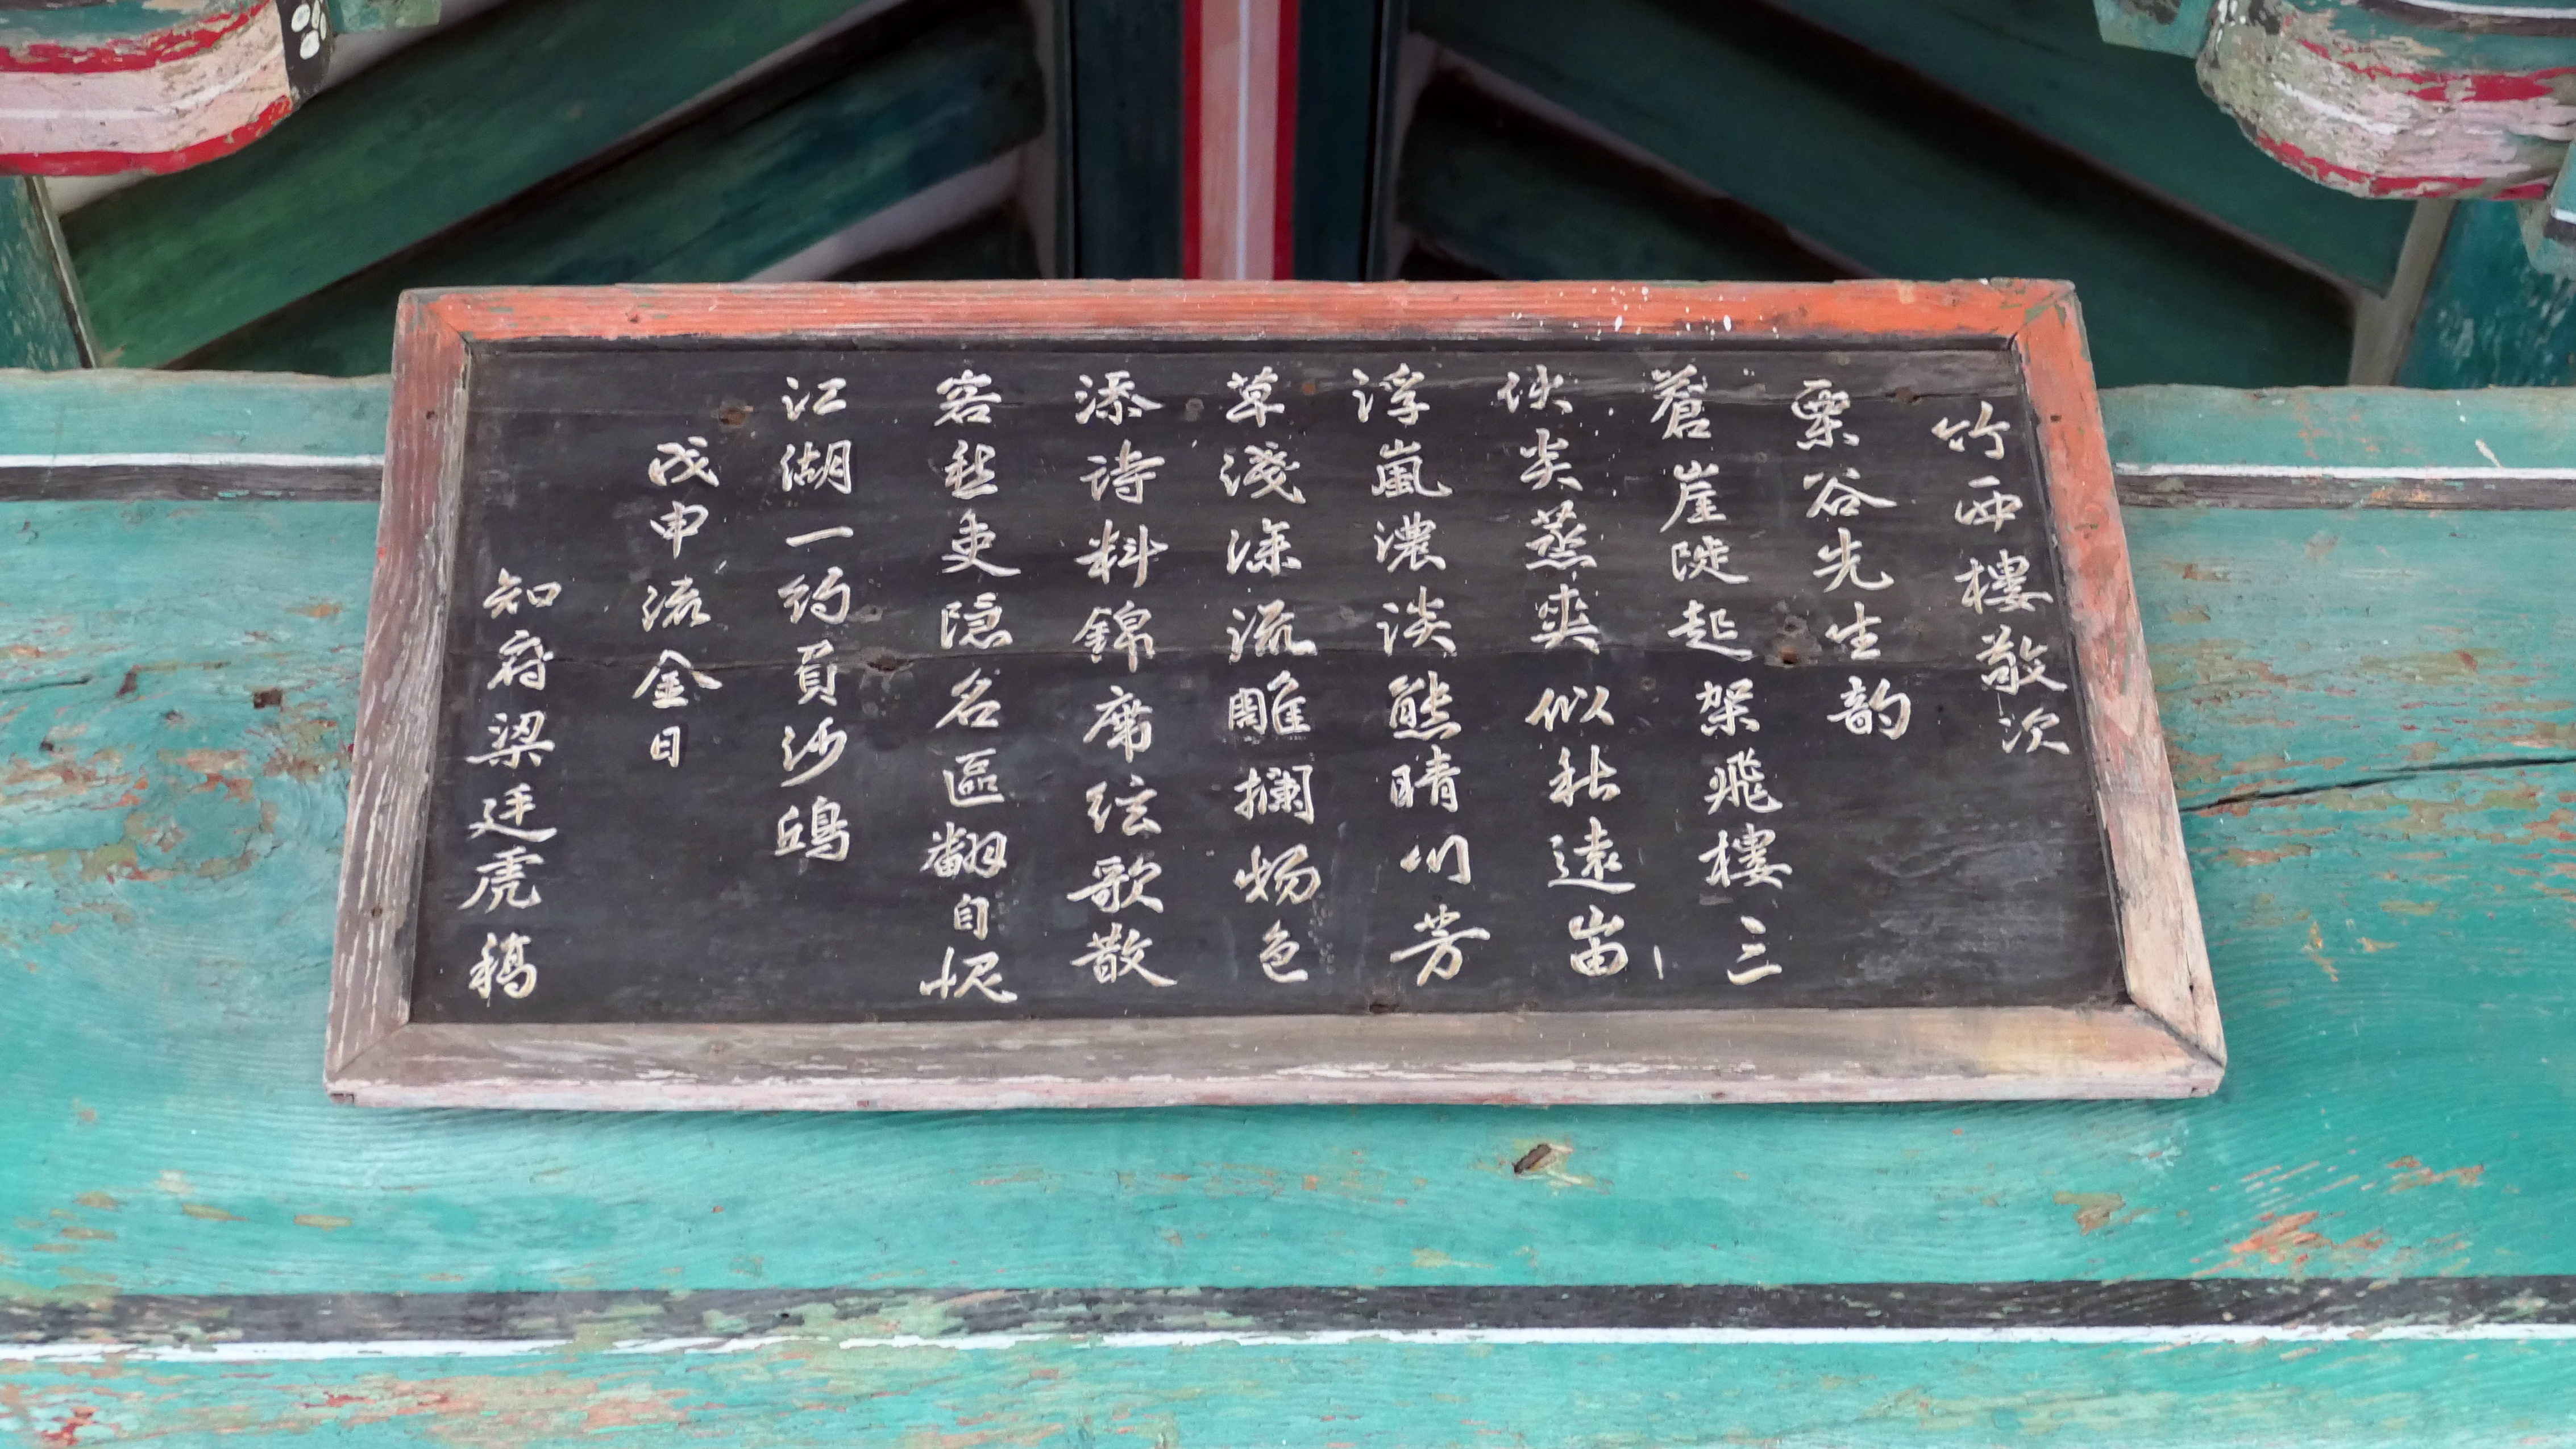 竹西樓敬次
栗谷先生韵
蒼崖陡起架飛樓三
伏炎蒸爽似秋遠峀
浮嵐濃淡態晴川芳
草淺深流雕欄物色
添詩料錦席絃歌散
客愁吏隱名區翻自愧
江湖一約負沙鷗
戊申流金日
知府梁廷虎稿